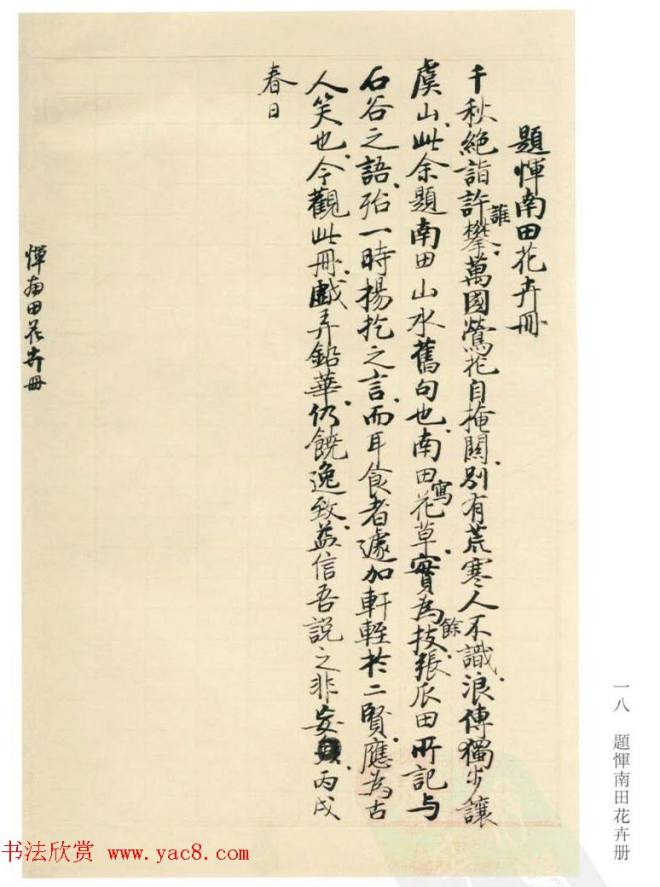 題惲南田花卉冊
千秋絕詣許誰攀。萬國鶯花自掩關。別有荒寒人不識。浪傳獨步讓
虞山。此余題南田山水舊句也。南田寫花草。實為餘技。張瓜田所記与
石谷之語。殆一時揚扢之言。而耳食者遽加軒輊於二賢。應為古
人笑也。今觀此冊。戲弄鉛華。仍饒逸致。益信吾說之非妄。丙戌
春日
惲南田花卉冊
一八 題惲南田花卉册
书法欣赏 www.yac8.com